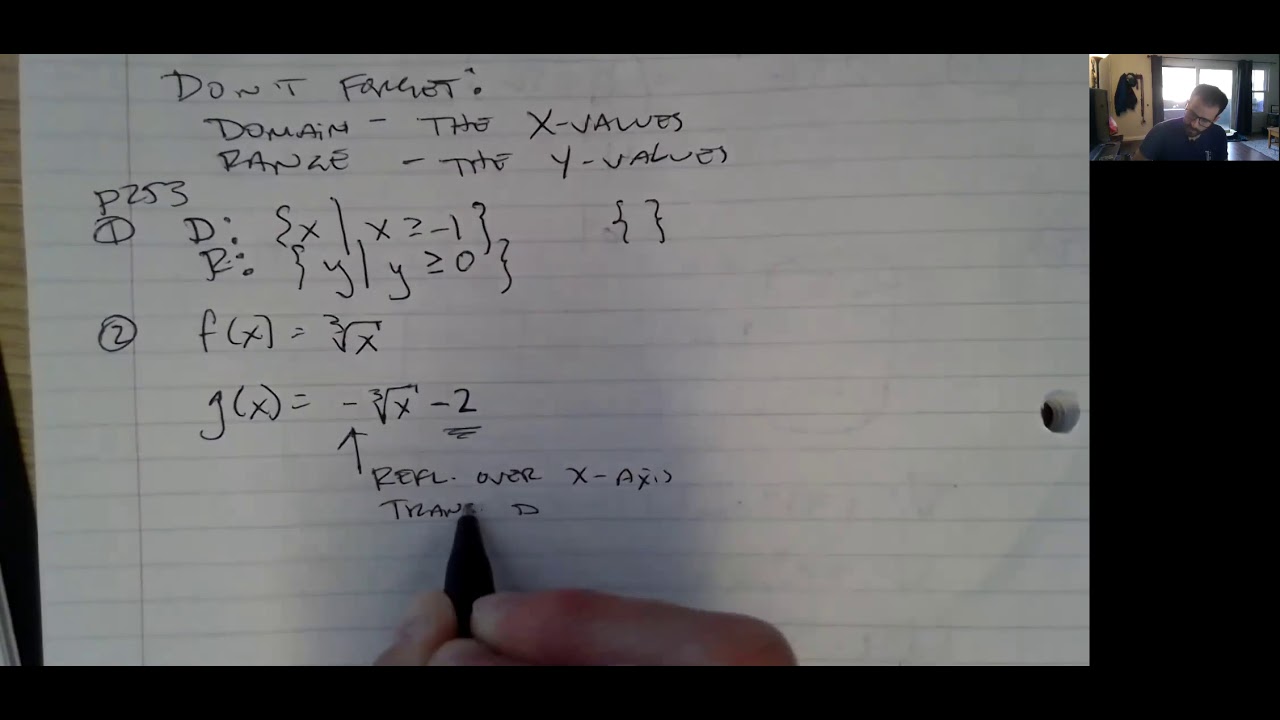 DON'T FORGET:
DOMAIN - THE X-VALUES
RANGE - THE Y-VALUES
p253
① D: {x | x ≥ -1} { }
R: {y | y ≥ 0}
② f(x) = ∛x
g(x) = -∛x - 2
REFL. OVER X-AXIS
TRANS. D